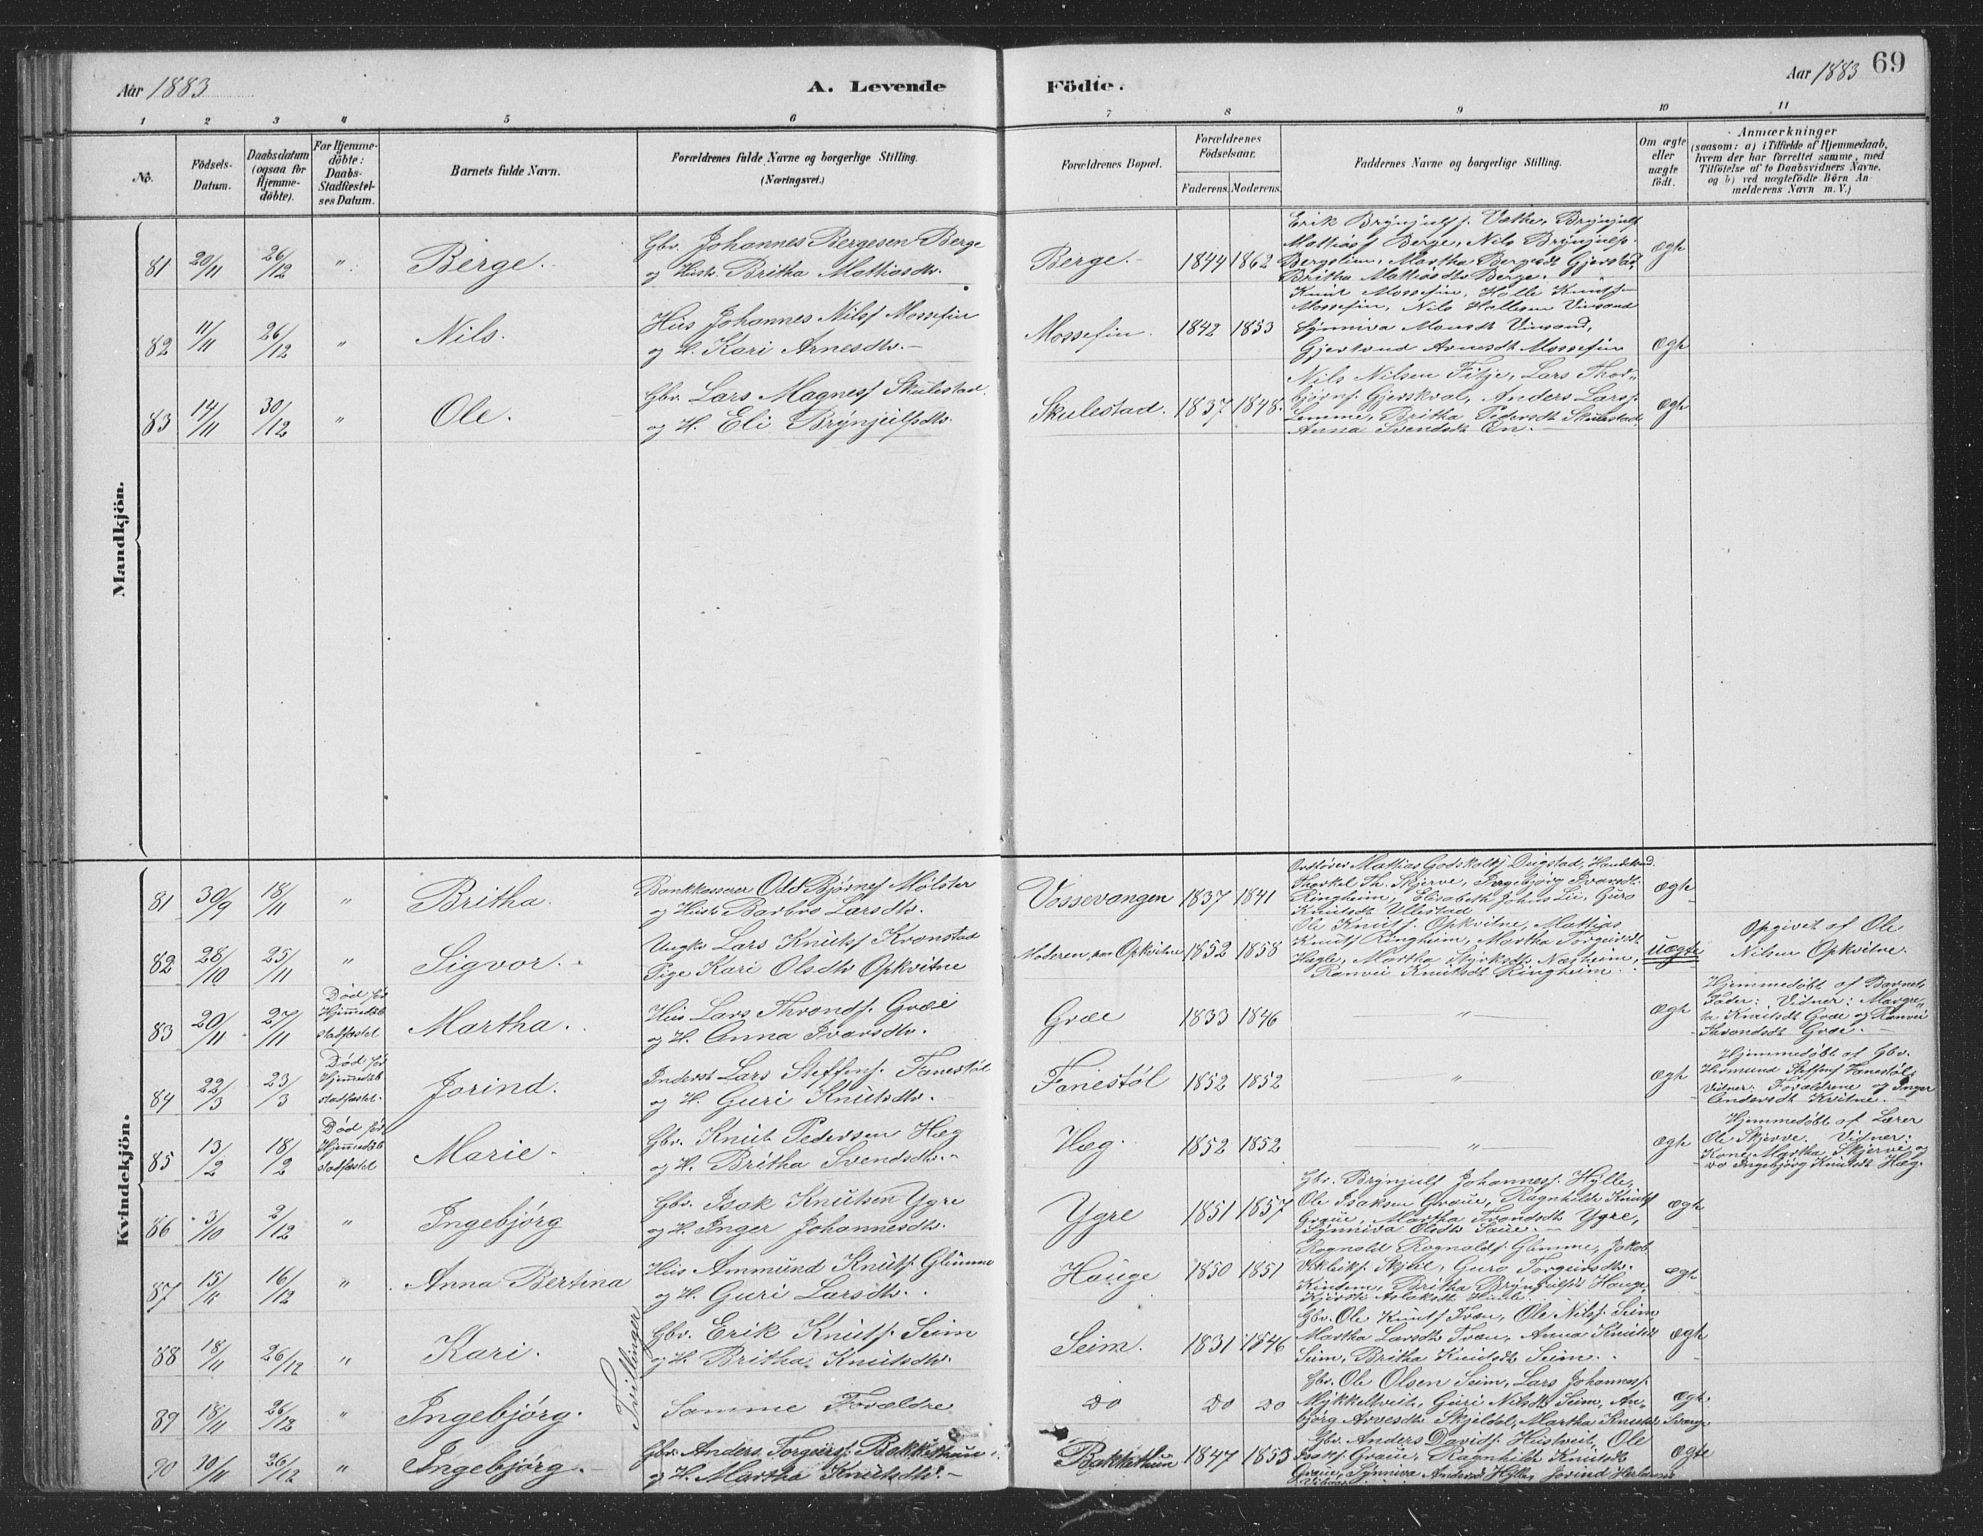 Aar 1883
A. Levende
Födte.
Aar 1883 69
1 2 3 4 5 6 7 8 9 10 11
No.
Födsels-
Datum.
Daabsdatum
(ogsaa for
Hjemme-
döbte).
For Hjemme-
döbte:
Daabs-
Stadfæstel-
ses Datum.
Barnets fulde Navn.
Forældrenes fulde Navne og borgerlige Stilling.
(Næringsvei.)
Forældrenes Bopæl.
Forældrenes
Födselsaar.
Faderens. Moderens.
Faddernes Navne og borgerlige Stilling.
Om ægte
eller
uægte
födt.
Anmærkninger
(saasom: a) i Tilfælde af Hjemmedaab,
hvem der har forrettet samme, med
Tilföielse af to Daabsvidners Navne,
og b) ved uægtefödte Börn An-
melderens Navn m. V.)
Mandkjön.
81 20/11 26/12 " Berge.
Gbr. Johannes Bergesen Berge
og Hustr. Britha Mathiasdtr.
Berge. 1844 1862
Erik Brynjulfs. Væthe, Brynjulf
Mathias Berge, Nils Brynjulfs.
Bergslien, Martha Bergesdt Gjerstad,
Britha Mathiasdtr Berge.
Ægte
82 11/11 26/12 " Nils.
Hus Johannes Nilss Mossefin
og H. Kari Arnesdtr.
Mossefin. 1842 1853
Knut Mossefin, Halle Knuts
Mossefin, Nils Hallesen Vinsand
Synniva Monsdt Vinsand,
Gjertrud Arnesdt Mossefin
Ægte
83 14/11 30/12 " Ole.
Gbr. Lars Magness Skulestad.
og H. Eli Brynjulfsdtr.
Skulestad. 1837 1848.
Nils Nilsen Fitje, Lars Thor-
bjørns. Gjerskval, Anders Larss.
Lemme, Britha Pedersdt Skulestad
Anna Svendsdt En.
Ægte
Kvindekjön.
81 30/9 18/11 " Britha.
Bankkasserer Odd Bjørnes Mølster
og Hustr Barbro Larsdtr.
Vossevangen 1837 1841
Ordfører Mathias Godskalks Dugstad, Handelsmd.
Thorkel Th. Skjerve, Ingebjørg Ivarsdt.
Ringheim, Elisabeth Johns Lii, Guro
Knutsdt Ullestad
Ægte
82 28/10 25/11 " Sigvor.
Ungk. Lars Knuts Kronstad
Pige Kari Olsdtr Opkvitne
Moderen paa Opkvitne 1852 1858
Ole Knuts. Opkvitne, Mathias
Knuts Ringheim, Martha Torgeirsdt.
Hagle, Martha Styrksdt Næsheim,
Ranvei Knutsdt Ringheim.
Uægte
Opgivet af Ole
Nilsen Opkvitne.
83 20/11 27/11
Død før
Hjemmedaab
stadfæstet
Martha.
Hus Lars Thronds. Græe
og H. Anna Ivarsdtr.
Græe 1833 1846 " Ægte
Hjemmedøbt af Barnets
Fader: Vidner: Margre-
ta Knutsdt Græe og Ranvei
Throndsdt Græe.
84 22/3 23/3
Død før
Hjemmedaab
stadfæstet.
Jorind.
Inderst Lars Steffens. Fanestøl
og H. Guri Knutsdtr.
Fanestøl 1852 1852 " Ægte
Hjemmedøbt af Gbr.
Steffens Fanestøl.
Vidner: Forældrene og Inger
Andersdt Kvitne.
85 13/2 18/2
Død før
Hjemmedaab
stadfæstet
Marie.
Gbr. Knut Pedersen Hæg
og H. Britha Svendsdtr.
Hæg. 1852 1852 " Ægte
Hjemmedøbt af Lærer
Ole Skjerve. Vidner:
Kone Martha Skjerve og
do Ingebjørg Knutsdt Hæg.
86 3/10 2/12 " Ingebjørg
Gbr. Isak Knutsen Ygre
og H. Inger Johannesdtr.
Ygre 1851 1857
Gbr. Brynjulf Johannes. Hylle,
Ole Isaksen Graue, Ragnhilde Knuts
Graue, Martha Trondsdt Ygre,
Synniva Olsdtr Saue.
Ægte
87 15/11 16/12 " Anna Bertina
Hus Ammund Knuts. Glimme
og H. Guri Larsdtr.
Hauge 1850 1851
Rognald Rognalds. Glimme, Jakob
Skjeil, Guro Torgeirsdtr.
Kindem, Britha Brynjulfsdt Hauge,
Kjersti Aslaksdt
Ægte
Tvillinger
88 18/11 26/12 " Kari.
Gbr. Erik Knuts. Seim
og H. Britha Knutsdtr.
Seim. 1831 1846
Gbr. Ole Knuts Tvæn, Ole Nils. Seim
Martha Larsdtr Tvæn, Anna Knutsdt
Seim, Britha Knutsdt Seim.
Ægte
89 18/11 26/12 " Ingebjørg.
Samme Forældre
do do do
Gbr. Ole Olsen Seim, Lars Johanness.
Mykkeltveit, Guri Nilsdt Seim, An-
bjørg Arnesdt Skjeldal, Martha Knutsdt
Ægte.
90 10/11 26/12 " Ingebjørg.
Gbr. Anders Torgeirs. Bakkethun
og H. Martha Knutsdtr.
Bakkethun 1847 1853
Gbr. Anders Davids. Hustveit, Ole
Isaks. Graue, Ragnhilde Knutsdt
Graue, Synniva Andersdt Hylle, Jorind
Ægte